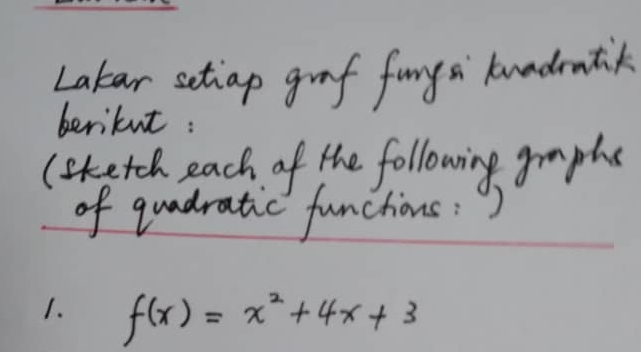 Lakar setiap graf fungsi kuadratik
berikut :
(sketch each of the following graphs
of quadratic functions : )
1. f(x) = x² + 4x + 3